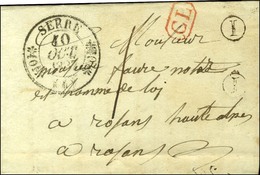 SERRES
10
OCT
Monsieur
monsieur faure notaire
et homme de loi
a rosans hautes alpes
a rosans
CL
I